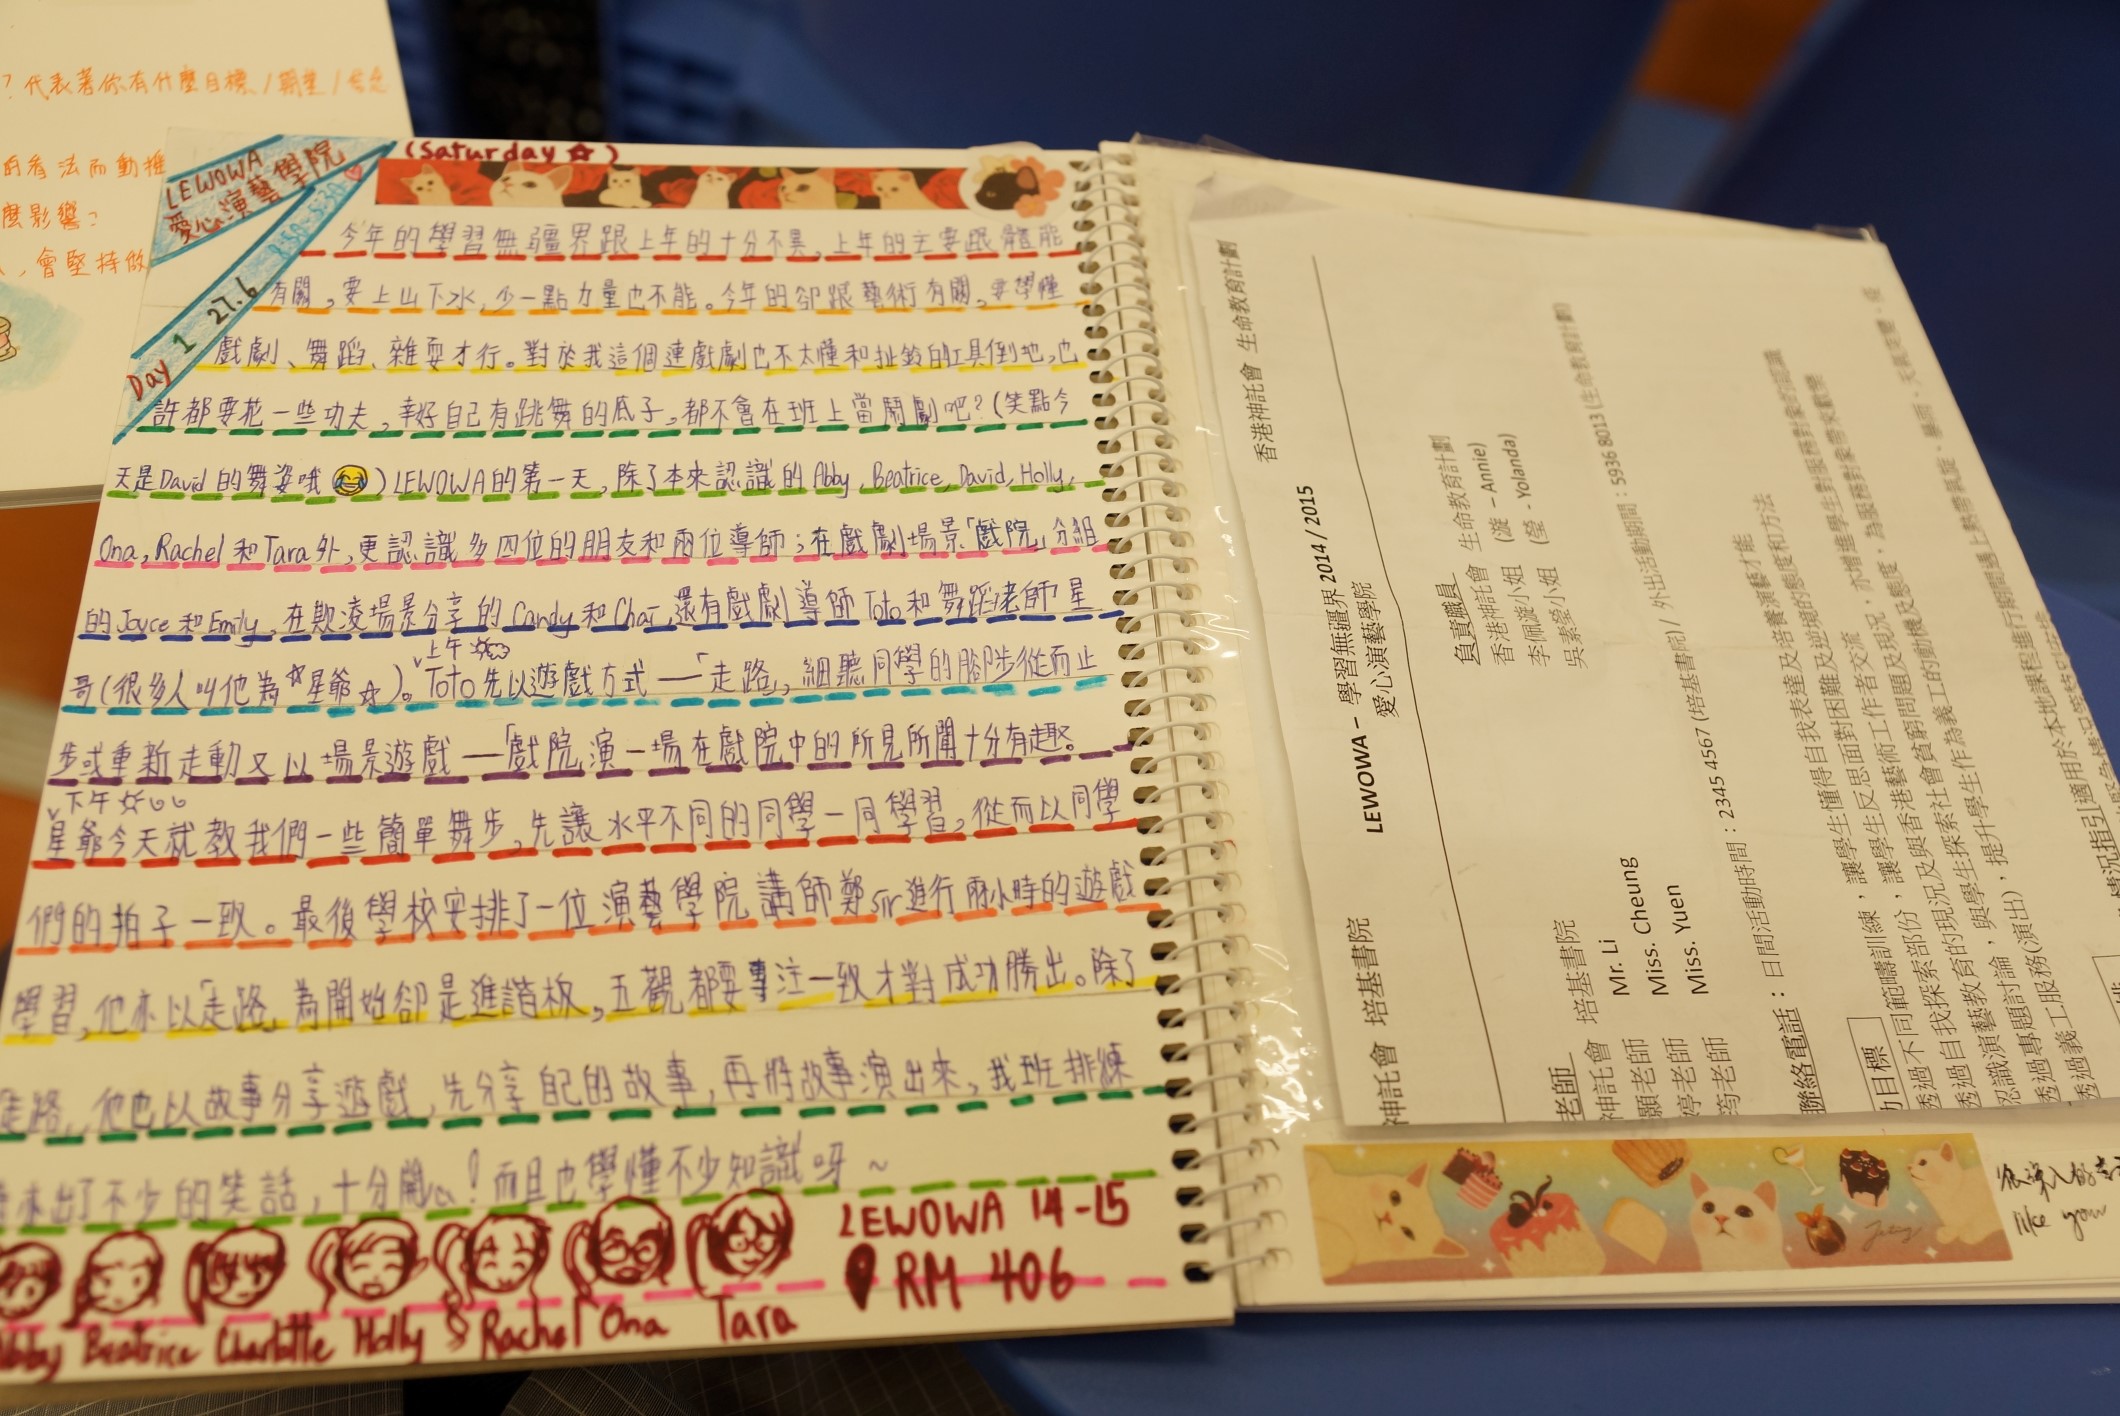 ？代表著你有什麼目標／期望／
的看法而動搖
麼影響？
，會堅持做
LEWOWA
愛心演藝學院
(Saturday☆)
Day 1 27.6 9:30-5:30
今年的學習無疆界跟上年的十分不異，上年的主要跟體能
有關，要上山下水，少一點力量也不能。今年的卻跟藝術有關，要學懂
戲劇、舞蹈、雜耍才行。對於我這個連戲劇也不太懂和扯鈴的工具倒地，也
許都要花一些功夫，幸好自己有跳舞的底子，都不會在班上當鬧劇吧？(笑點今
天是David的舞姿哦😂)LEWOWA的第一天，除了本來認識的Abby, Beatrice, David, Holly,
Ona, Rachel和Tara外，更認識多四位的朋友和兩位導師；在戲劇場景「戲院」分組
的Joyce和Emily，在欺凌場景分享的Candy和Chai，還有戲劇導師Toto和舞蹈老師星
哥(很多人叫他為☆星爺☆)。上午Toto先以遊戲方式——「走路」，細聽同學的腳步從而止
步或重新走動又以場景遊戲——「戲院」演一場在戲院中的所見所聞十分有趣。
下午
星爺今天就教我們一些簡單舞步，先讓水平不同的同學一同學習，從而以同學
們的拍子一致。最後學校安排了一位演藝學院講師鄭sir進行兩小時的遊戲
學習，他亦以「走路」為開始卻是進諧板，五觀都要專注一致才對成功勝出。除了
走路，他也以故事分享遊戲，先分享自己的故事，再將故事演出來，我班排練
來出了不少的笑話，十分開心！而且也學懂不少知識呀～
Abby Beatrice Charlotte Holly Rachel Ona Tara
LEWOWA 14-15
RM 406
香港神託會 生命教育計劃
神託會 培基書院
LEWOWA – 學習無疆界 2014 / 2015
愛心演藝學院
負責職員
香港神託會 生命教育計劃
李佩漩小姐 (漩 – Annie)
吳素瑩小姐 (瑩 - Yolanda)
老師
神託會 培基書院
顥老師 Mr. Li
婷老師 Miss. Cheung
筠老師 Miss. Yuen
聯絡電話：日間活動時間：2345 4567 (培基書院) / 外出活動期間：5936 8013 (生命教育計劃)
目標
透過不同範疇訓練，讓學生懂得自我表達及培養演藝才能
透過自我探索部份，讓學生反思面對困難及逆境的態度和方法
認識演藝教育的現況及與香港藝術工作者交流
透過專題討論，與學生探索社會貧窮問題及現況，亦增進學生對服務對象的認識
透過義工服務(演出)，提升學生作為義工的動機及態度，為服務對象帶來歡樂
情況指引適用於本地課程進行期間遇上熱帶氣旋、暴雨、天氣炎熱